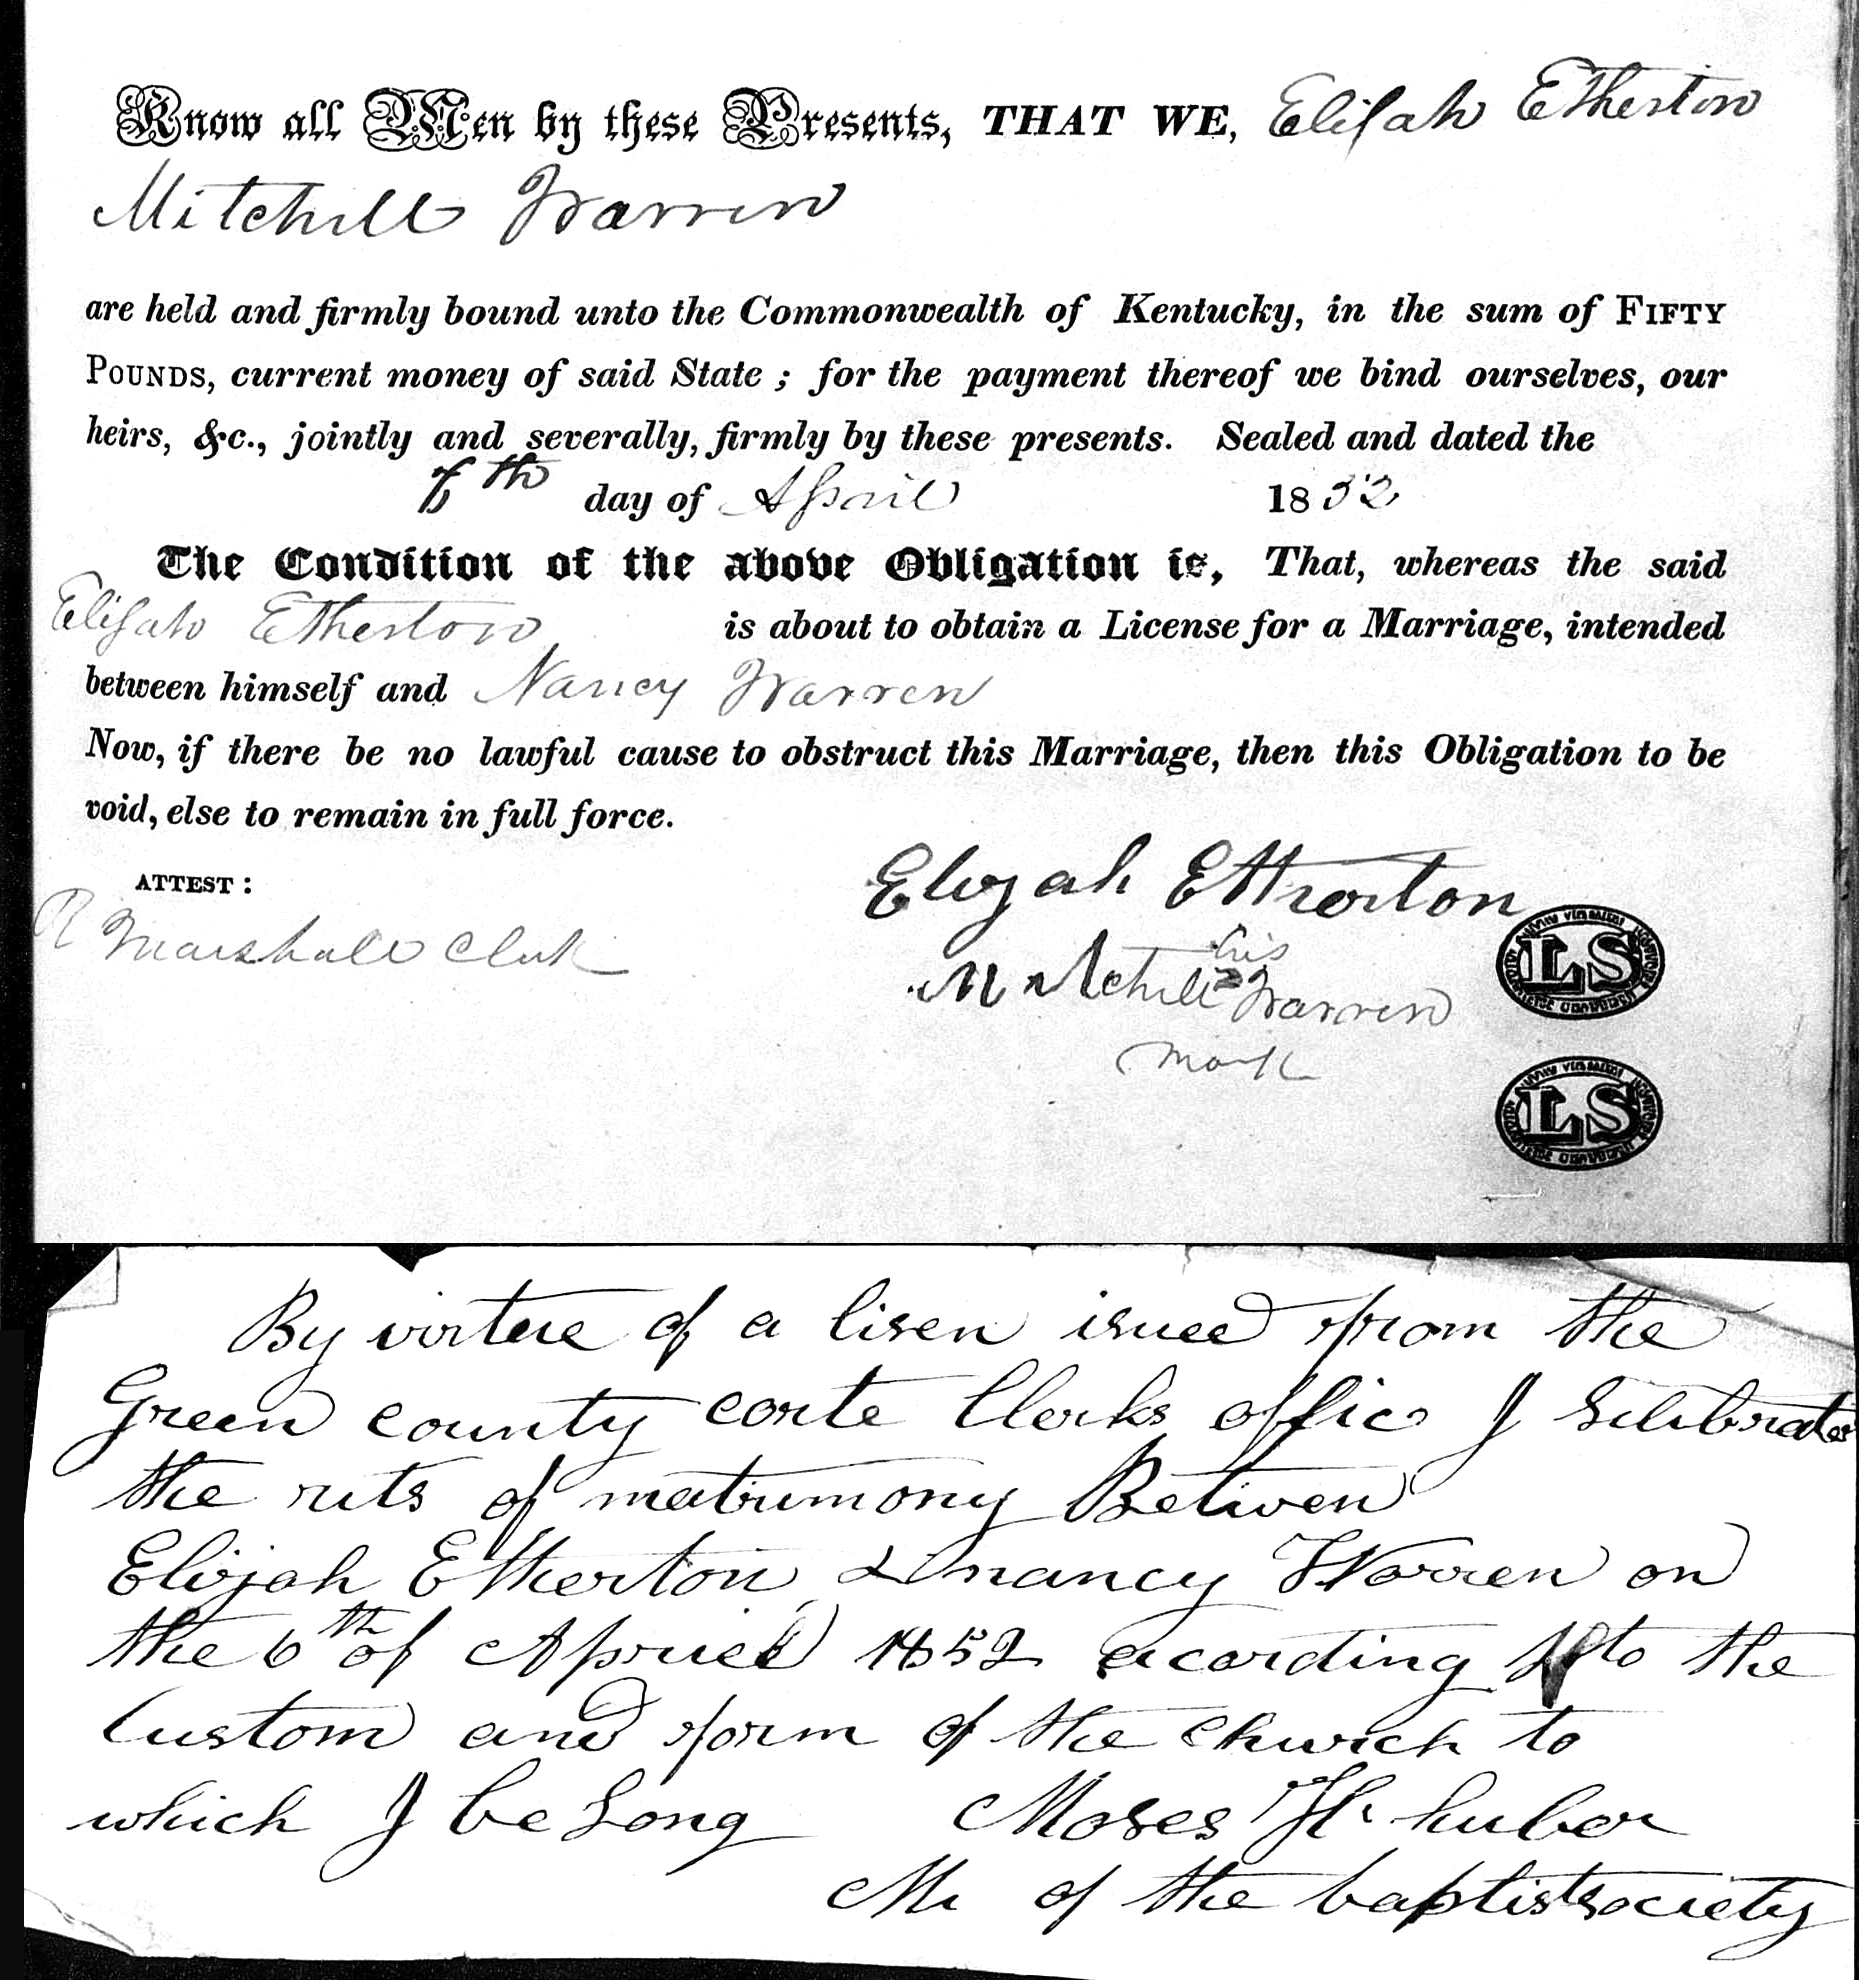 Know all Men by these Presents, THAT WE, Elijah Etherton
Mitchell Warren
are held and firmly bound unto the Commonwealth of Kentucky, in the sum of FIFTY
POUNDS, current money of said State ; for the payment thereof we bind ourselves, our
heirs, &c., jointly and severally, firmly by these presents. Sealed and dated the
th day of April 1852
The Condition of the above Obligation is, That, whereas the said
Elijah Etherton is about to obtain a License for a Marriage, intended
between himself and Nancy Warren
Now, if there be no lawful cause to obstruct this Marriage, then this Obligation to be
void, else to remain in full force.
ATTEST :
Elijah Etherton
R Marshall Clerk
his
Mitchell Warren
mark
LS
LS
By virtue of a lisen isued from the
Green county corte Clerks offic I Selibrated
the rits of matrimony Betwen
Elijah Etherton & nancy Warren on
the 6th of Apriel 1852 acording to the
Custom and form of the church to
which I be Long Moses H. huber
M of the baptist society